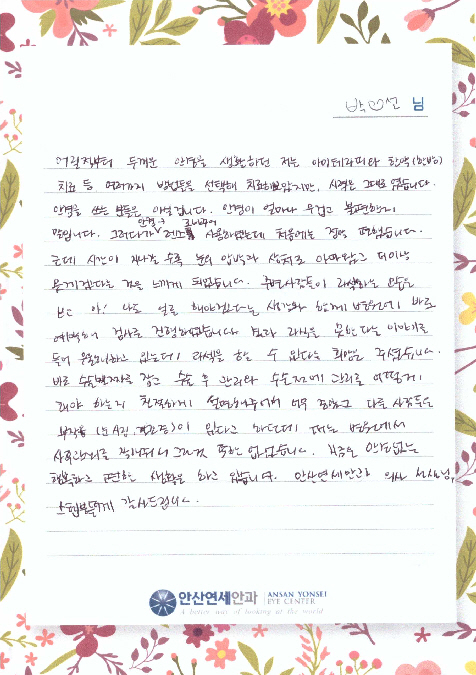 박♡선 님
어릴적부터 두꺼운 안경을 생활하던 저는 아이테라피와 한약(한방)
치료 등 여러가지 방법들을 선택해 치료해보았지만, 시력은 그대로 였습니다.
안경을 쓰는 분들은 아실겁니다. 안경이 얼마나 무겁고 불편한지
말입니다. 그러다가 안경→ 렌즈를 바꾸어 사용하였는데 처음에는 정말 편했습니다.
근데 시간이 지나갈 수록 눈의 압박과 상처로 아파왔고 더이상
안되겠다는 것을 느끼게 되었습니다. 주변사람들이 라식하는 모습을
보고 아! 나도 얼른 해야겠다는 생각과 함께 병원에 바로
예약해 검사를 진행하였습니다 보라 라식을 못한다는 이야기를
듣어 우울해하고 있는데 라섹을 할 수 있다는 희망을 주셨습니다.
바로 수술날짜를 잡고 수술 후 관리와 수술전에 관리를 어떻게
해야 하는지 친절하게 설명해주어서 너무 좋았고 다른 사람들은
부작용 이 있다고 하던데 저는 병원에서
사후관리를 그런 것은 없었습니다. 지금은 안경없는
행복하고 편한 생활을 하고 있습니다. 안산연세안과 의사 선생님,
스텝분들께 감사드립니다.
안산연세안과 ANSAN YONSEI EYE CENTER
A better way of looking at the world